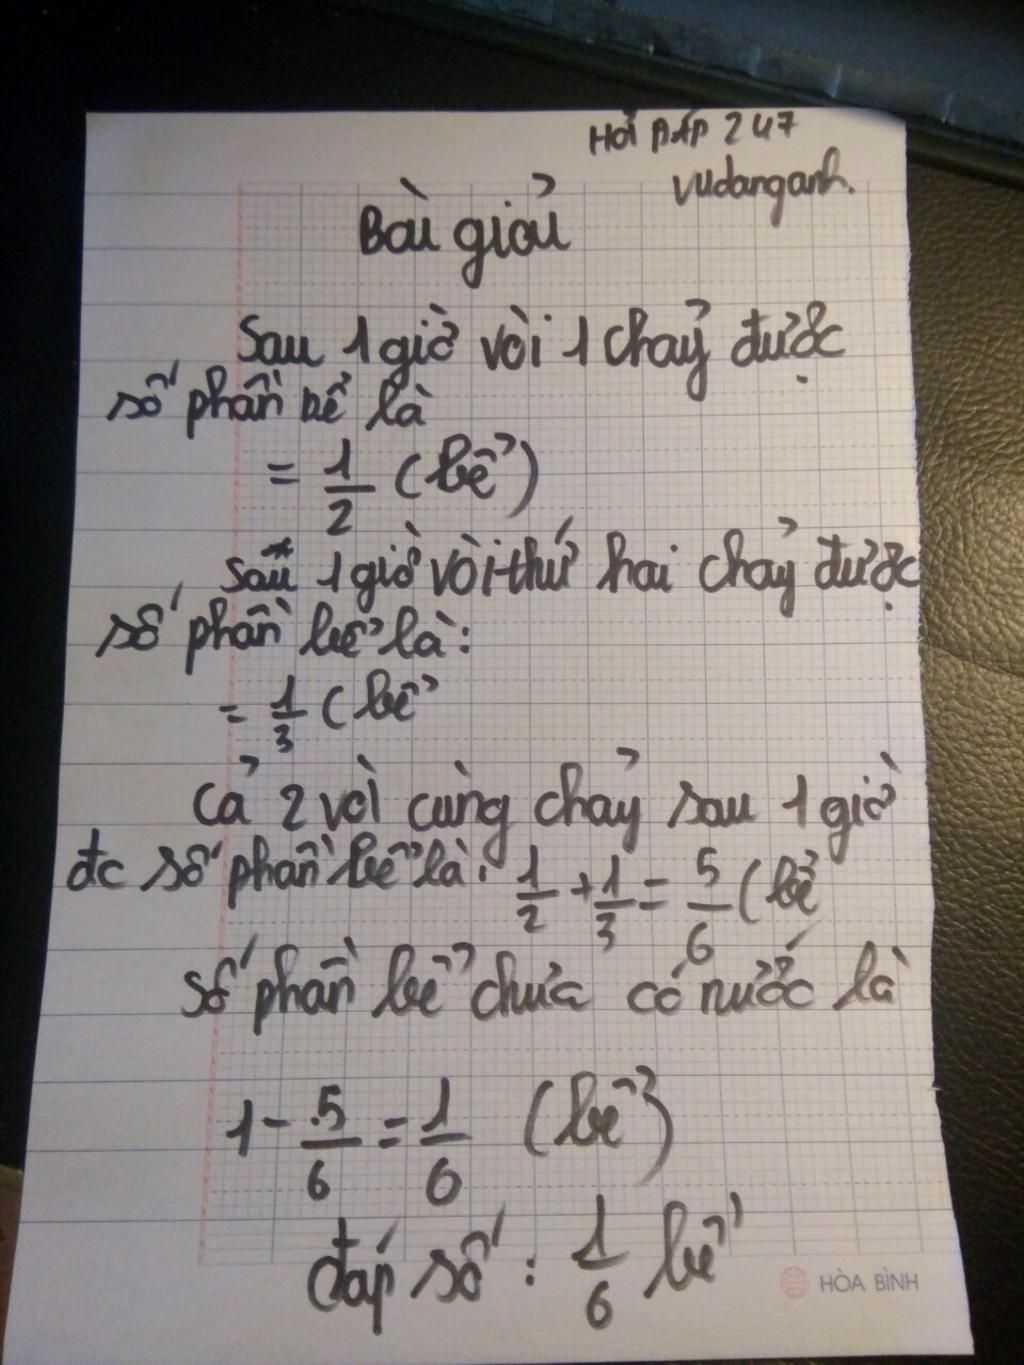 HỎI ĐÁP 247
vudanganh.
Bài giải
Sau 1 giờ vòi 1 chảy được
số phần bể là
= 1/2 (bể)
Sau 1 giờ vòi thứ hai chảy được
số phần bể là:
= 1/3 (bể
Cả 2 vòi cùng chảy sau 1 giờ
đc số phần bể là: 1/2 + 1/3 = 5/6 (bể
số phần bể chưa có nước là
1 - 5/6 = 1/6 (bể)
đáp số : 1/6 bể
HÒA BÌNH